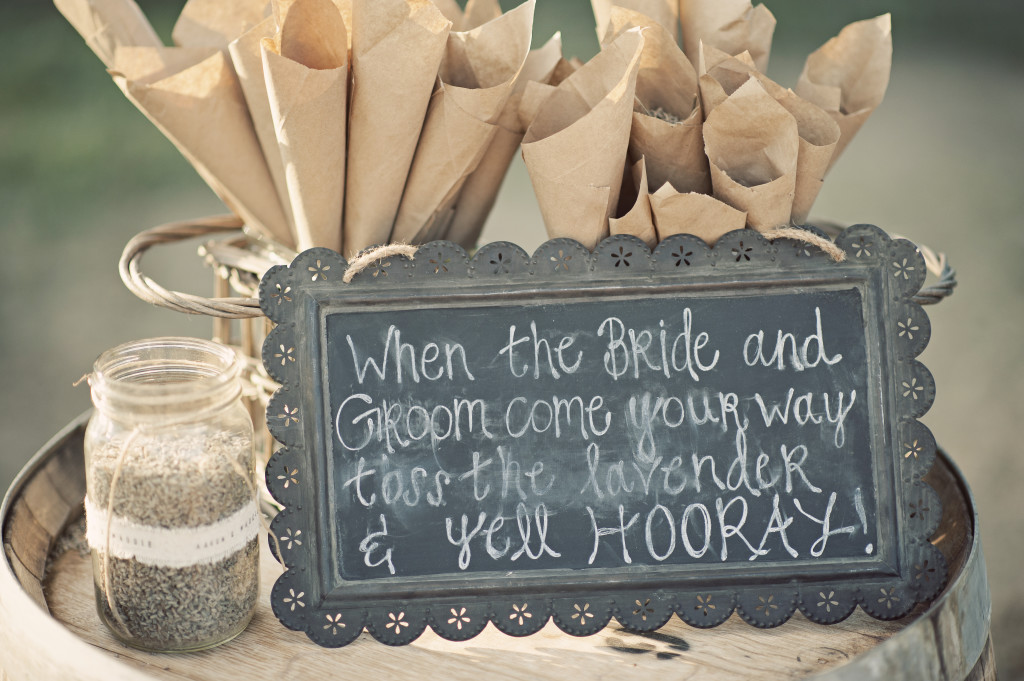 When the Bride and
Groom come your way
toss the lavender
& yell HOORAY!